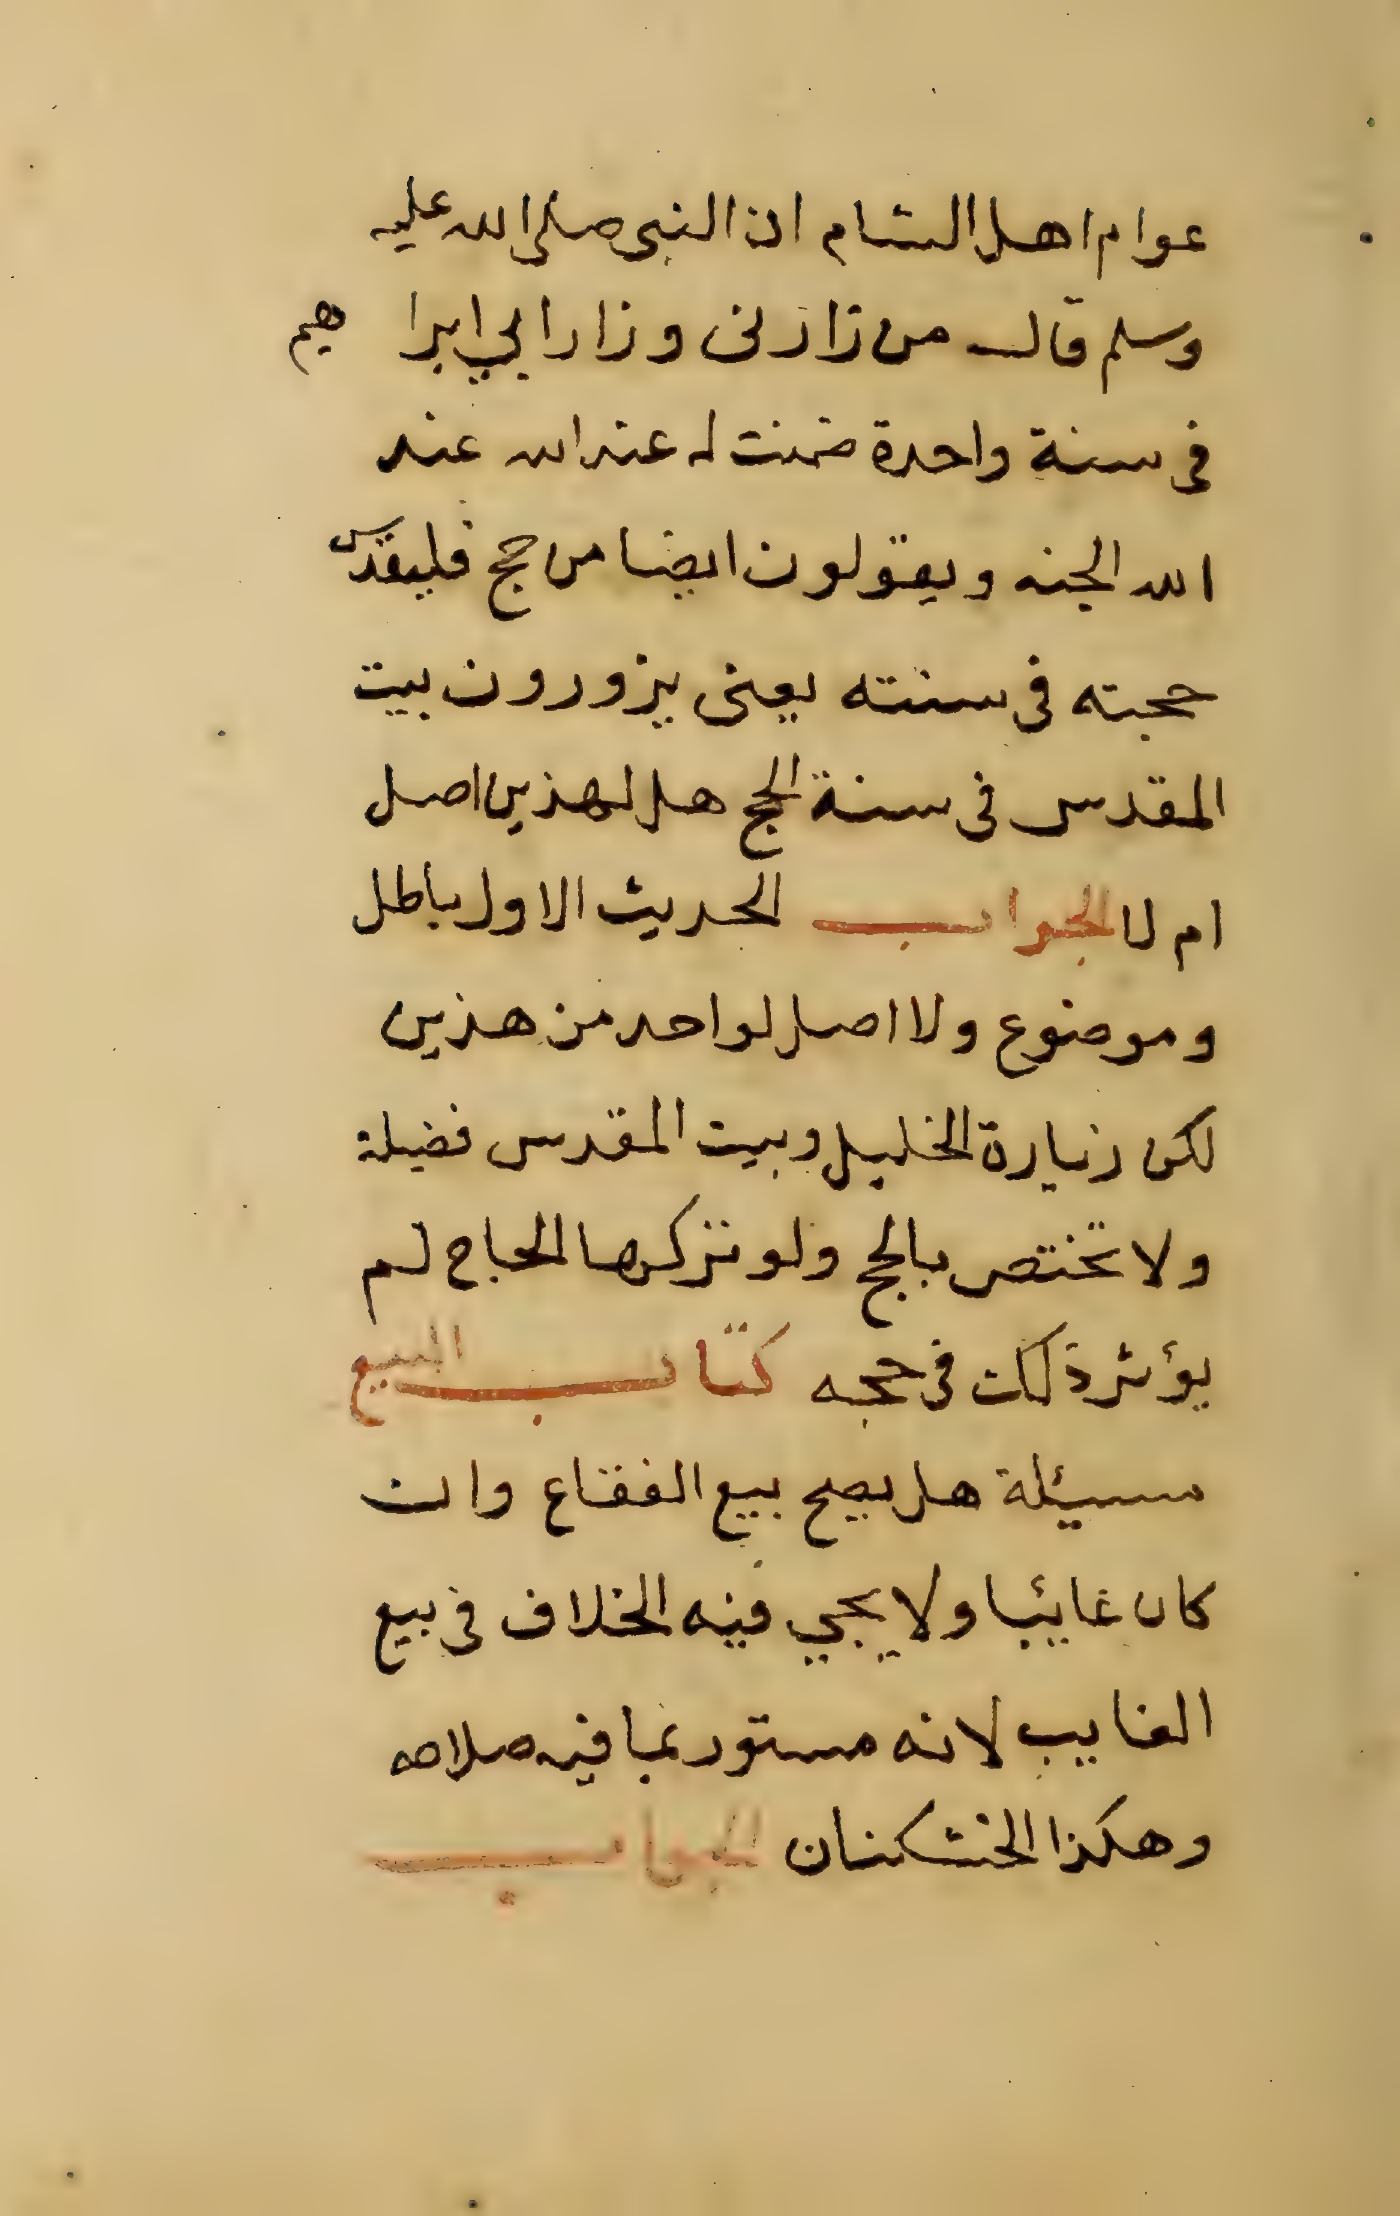 عوام اهل الشام ان النبى صلى الله عليه
وسلم قال من زارنى وزار ابي ابراهيم
فى سنة واحدة ضمنت له عند الله عند
الله الجنه ويقولون ايضا من حج فليقدس
حجته فى سنته يعنى يزورون بيت
المقدس فى سنة الحج هل لهذين اصل
ام لا الجواب الحديث الاول باطل
وموضوع ولا اصل لواحد من هذين
لكن زيارة الخليل وبيت المقدس فضيلة
ولا تختص بالحج ولو تركها الحاج لم
يؤثر ذلك فى حجه كتاب البيع
مسئلة هل يصح بيع الفقاع وان
كان غائبا ولا يجي فيه الخلاف فى بيع
الغايب لانه مستور بما فيه صلاحه
وهكذا الخشكنان الجواب